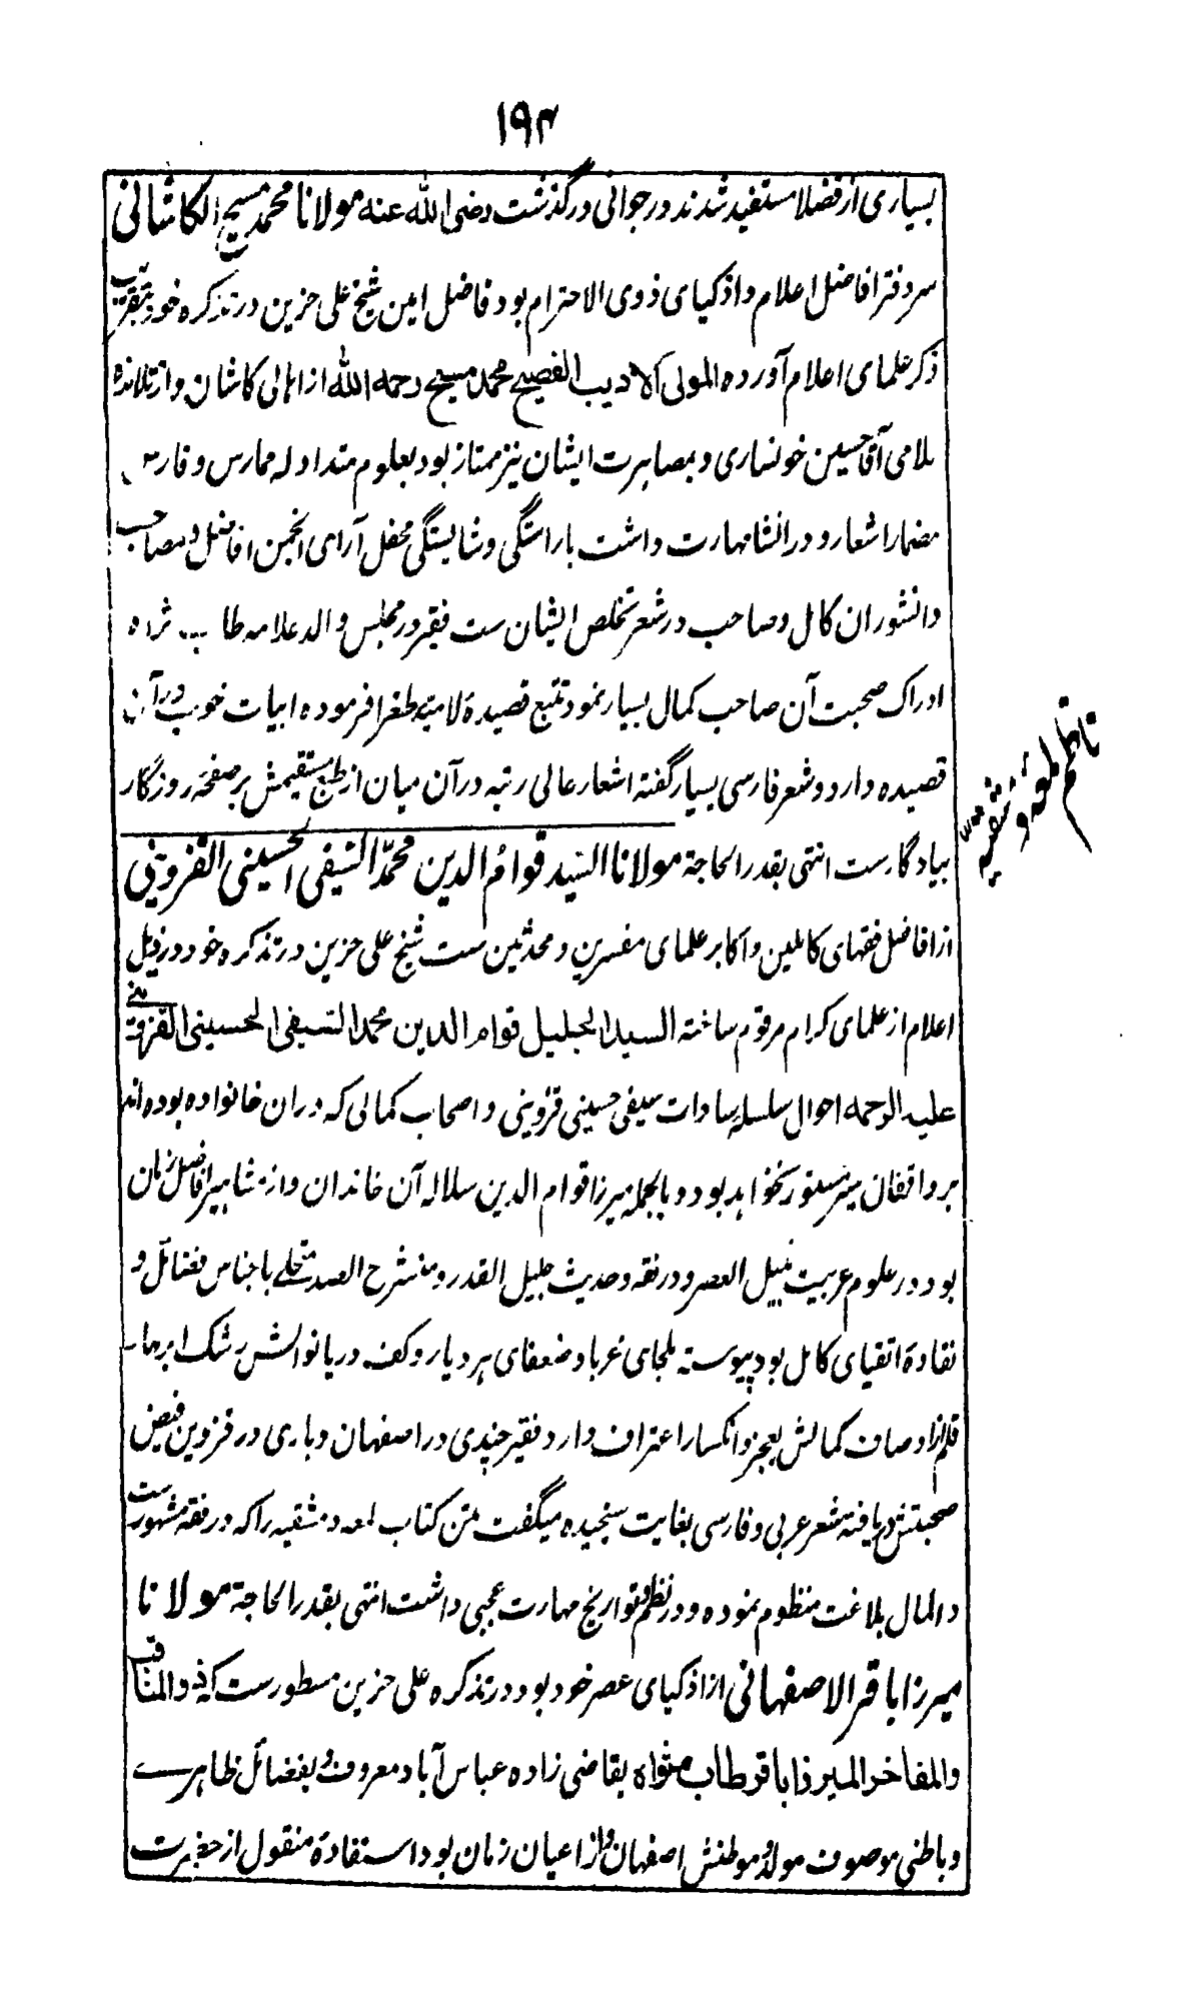 ۱۹۴
بسیاری از فضلا مستفید شدند در جوانی درگذشت رضی الله عنه مولانا محمد مسیح الکاشانی
سر دفتر افاضل اعلام و اذکیای ذوی الاحترام بود فاضل امین شیخ علی حزین در تذکره خود بتقریب
ذکر علمای اعلام آورده المولی الادیب الفصیح محمد مسیح رحمه الله از اهالی کاشان و از تلامذهٔ
سلامی آقا حسین خونساری و بمصاهرت ایشان نیز ممتاز بود بعلوم متداوله ممارس و فارس
مضمار اشعار و در انشا مهارت داشت باراستگی و شایستگی محفل آرای انجمن افاضل و مصاحب
دانشوران کامل و صاحب در شعر تخلص ایشان ست فقیر در مجلس والد علامه طاب ثراه
ادراک صحبت آن صاحب کمال بسیار نمود تتبع قصیدهٔ لامیه طغرا فرموده ابیات خوب در آن
قصیده دارد و شعر فارسی بسیار گفته اشعار عالی رتبه در آن میان از طبع مستقیمش بر صفحهٔ روزگار
بیادگارست انتهی بقدر الحاجة مولانا السید قوام الدین محمد السیفی الحسینی القزوینی
ناظم لمعه دمشقیه
از افاضل فقهای کاملین و اکابر علمای مفسرین و محدثین ست شیخ علی حزین در تذکره خود در ذیل
اعلام از علمای کرام مرقوم ساخته السید الجلیل قوام الدین محمد السیفی الحسینی القزوینی
علیه الرحمه احوال سلسلهٔ سادات سیفی حسینی قزوینی و اصحاب کمالی که دران خانواده بوده اند
بر واقفان سیر مستور نخواهد بود و بالجمله میرزا قوام الدین سلاله آن خاندان و از مشاهیر افاضل زمان
بود در علوم عربیت نبیل العصر و در فقه و حدیث جلیل القدر و منشرح الصدر متحلے باجناس فضائل و
نقادهٔ اتقیای کامل بود پیوسته ملجای غربا و ضعفای هر دیار و کف دریا نوالش رشک ابر بهار
قلم از اوصاف کمالش بعجز و انکسار اعتراف دارد فقیر چندی در اصفهان و باری در قزوین فیض
صحبتش دریافته شعر عربی و فارسی بغایت سنجیده میگفت متن کتاب لمعه دمشقیه را که در فقه مشهورست
در کمال بلاغت منظوم نموده و در نظم تواریخ مهارت عجبی داشت انتهی بقدر الحاجة مولانا
میرزا باقر الاصفهانی از اذکیای عصر خود بود در تذکره علی حزین مسطورست که ذو المناقب
والمفاخر المیرزا باقر طاب مثواه بقاضی زاده عباس آباد معروف و بفضائل ظاهرے
و باطنی موصوف مولد و موطنش اصفهان و از اعیان زمان بود استفادهٔ منقول از حضرت